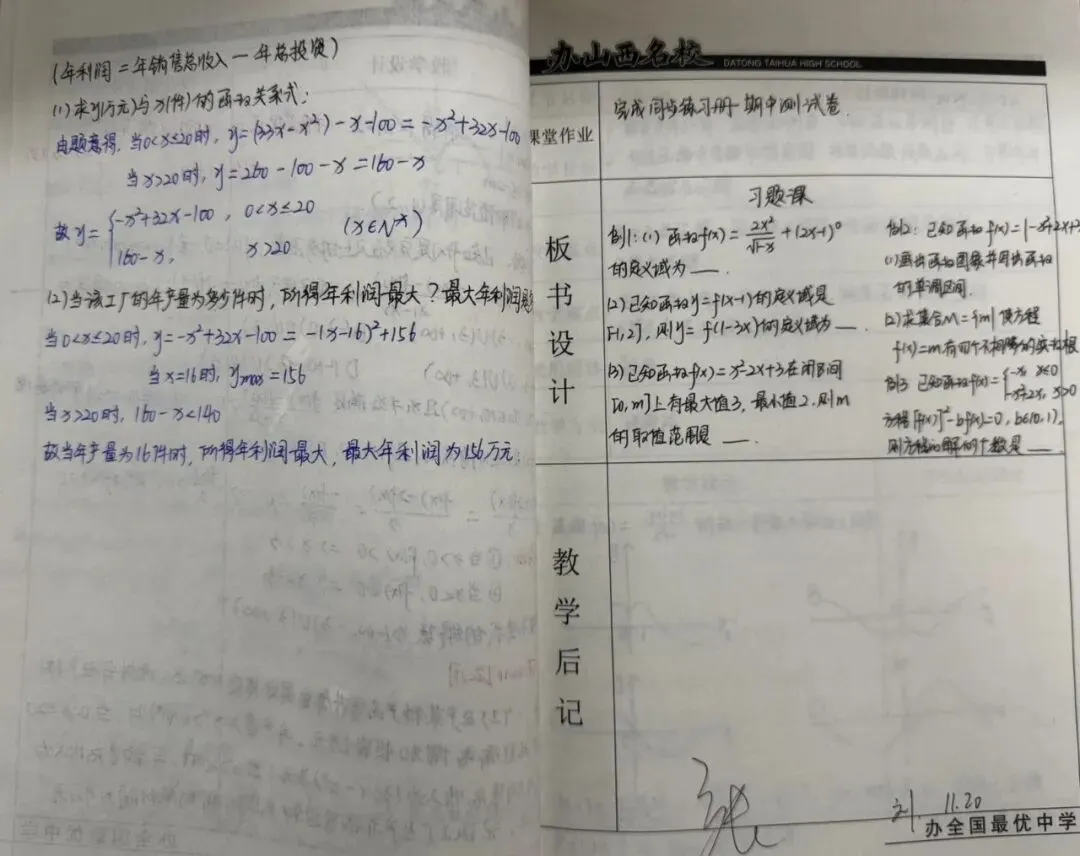 (年利润=年销售总收入-年总投资)
(1)求y(万元)与x(件)的函数关系式;
由题意得,当0<x≤20时,y=(33x-x²)-x-100=-x²+32x-100
当x>20时,y=260-100-x=160-x
故y={-x²+32x-100,0<x≤20
160-x, x>20 (x∈N*)
(2)当该工厂的年产量为多少件时,所得年利润最大?最大年利润
当0<x≤20时,y=-x²+32x-100=-(x-16)²+156
当x=16时,ymax=156
当x>20时,160-x<140
故当年产量为16件时,所得年利润最大,最大年利润为156万元.
办山西名校
DATONG TAIHUA HIGH SCHOOL
课堂作业
完成同步练习册-期中测试卷
板书设计
习题课
例1:(1)函数f(x)=2x²/√(1-x)+(2x-1)⁰
的定义域为___.
(2)已知函数y=f(x-1)的定义域是
[-1,2],则y=f(1-3x)的定义域为___.
(3)已知函数f(x)=x²-2x+3在闭区间
[0,m]上有最大值3,最小值2.则m
的取值范围是___.
例2:已知函数f(x)=|-x²+2x+3
(1)画出函数图象并写出函数
的单调区间.
(2)求集合M={m|使方程
f(x)=m有四个不相等的实数根
例3 已知函数f(x)={-x, x≤0
-x²+2x, x>0
方程[f(x)]²-bf(x)=0,b∈(0,1),
则方程的解的个数是___.
教学后记
11.20
办全国最优中学